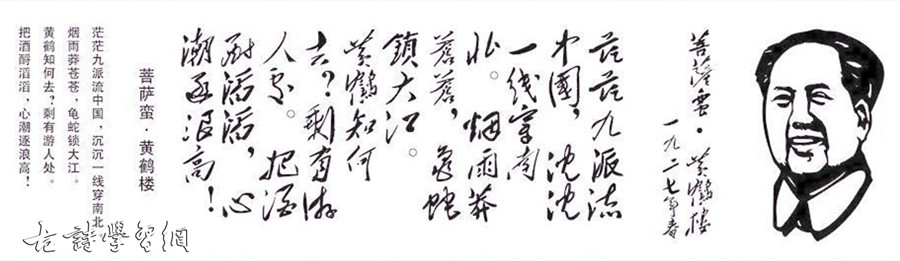 菩萨蛮·黄鹤楼
一九二七年春
茫茫九派流
中國，沈沈
一线穿南
北。烟雨莽
蒼蒼，龜蛇
鎖大江。
黄鶴知何
去？剩有游
人处。把酒
酹滔滔，心
潮逐浪高！
菩萨蛮·黄鹤楼
茫茫九派流中国，沉沉一线穿南北。
烟雨莽苍苍，龟蛇锁大江。
黄鹤知何去？剩有游人处。
把酒酹滔滔，心潮逐浪高！
詩學習網